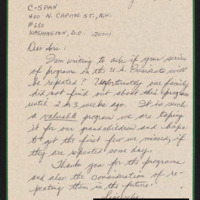 C-SPAN
400 N. CAPITOL ST., N.W.
# 650
WASHINGTON, D.C. 20001
Dear Sirs:
I am writing to ask if your series
of programs on the U.S. Presidents will
be repeated? Unfortunately our family
did not find out about this program
until 2 to 3 weeks ago. It is such
a valuable program we are taping
it for our grandchildren and hope
to get the first few we missed, if
they are repeated some day.
Thank you for the programs
and also the consideration of re-
peating them in the future.
Sincerely,